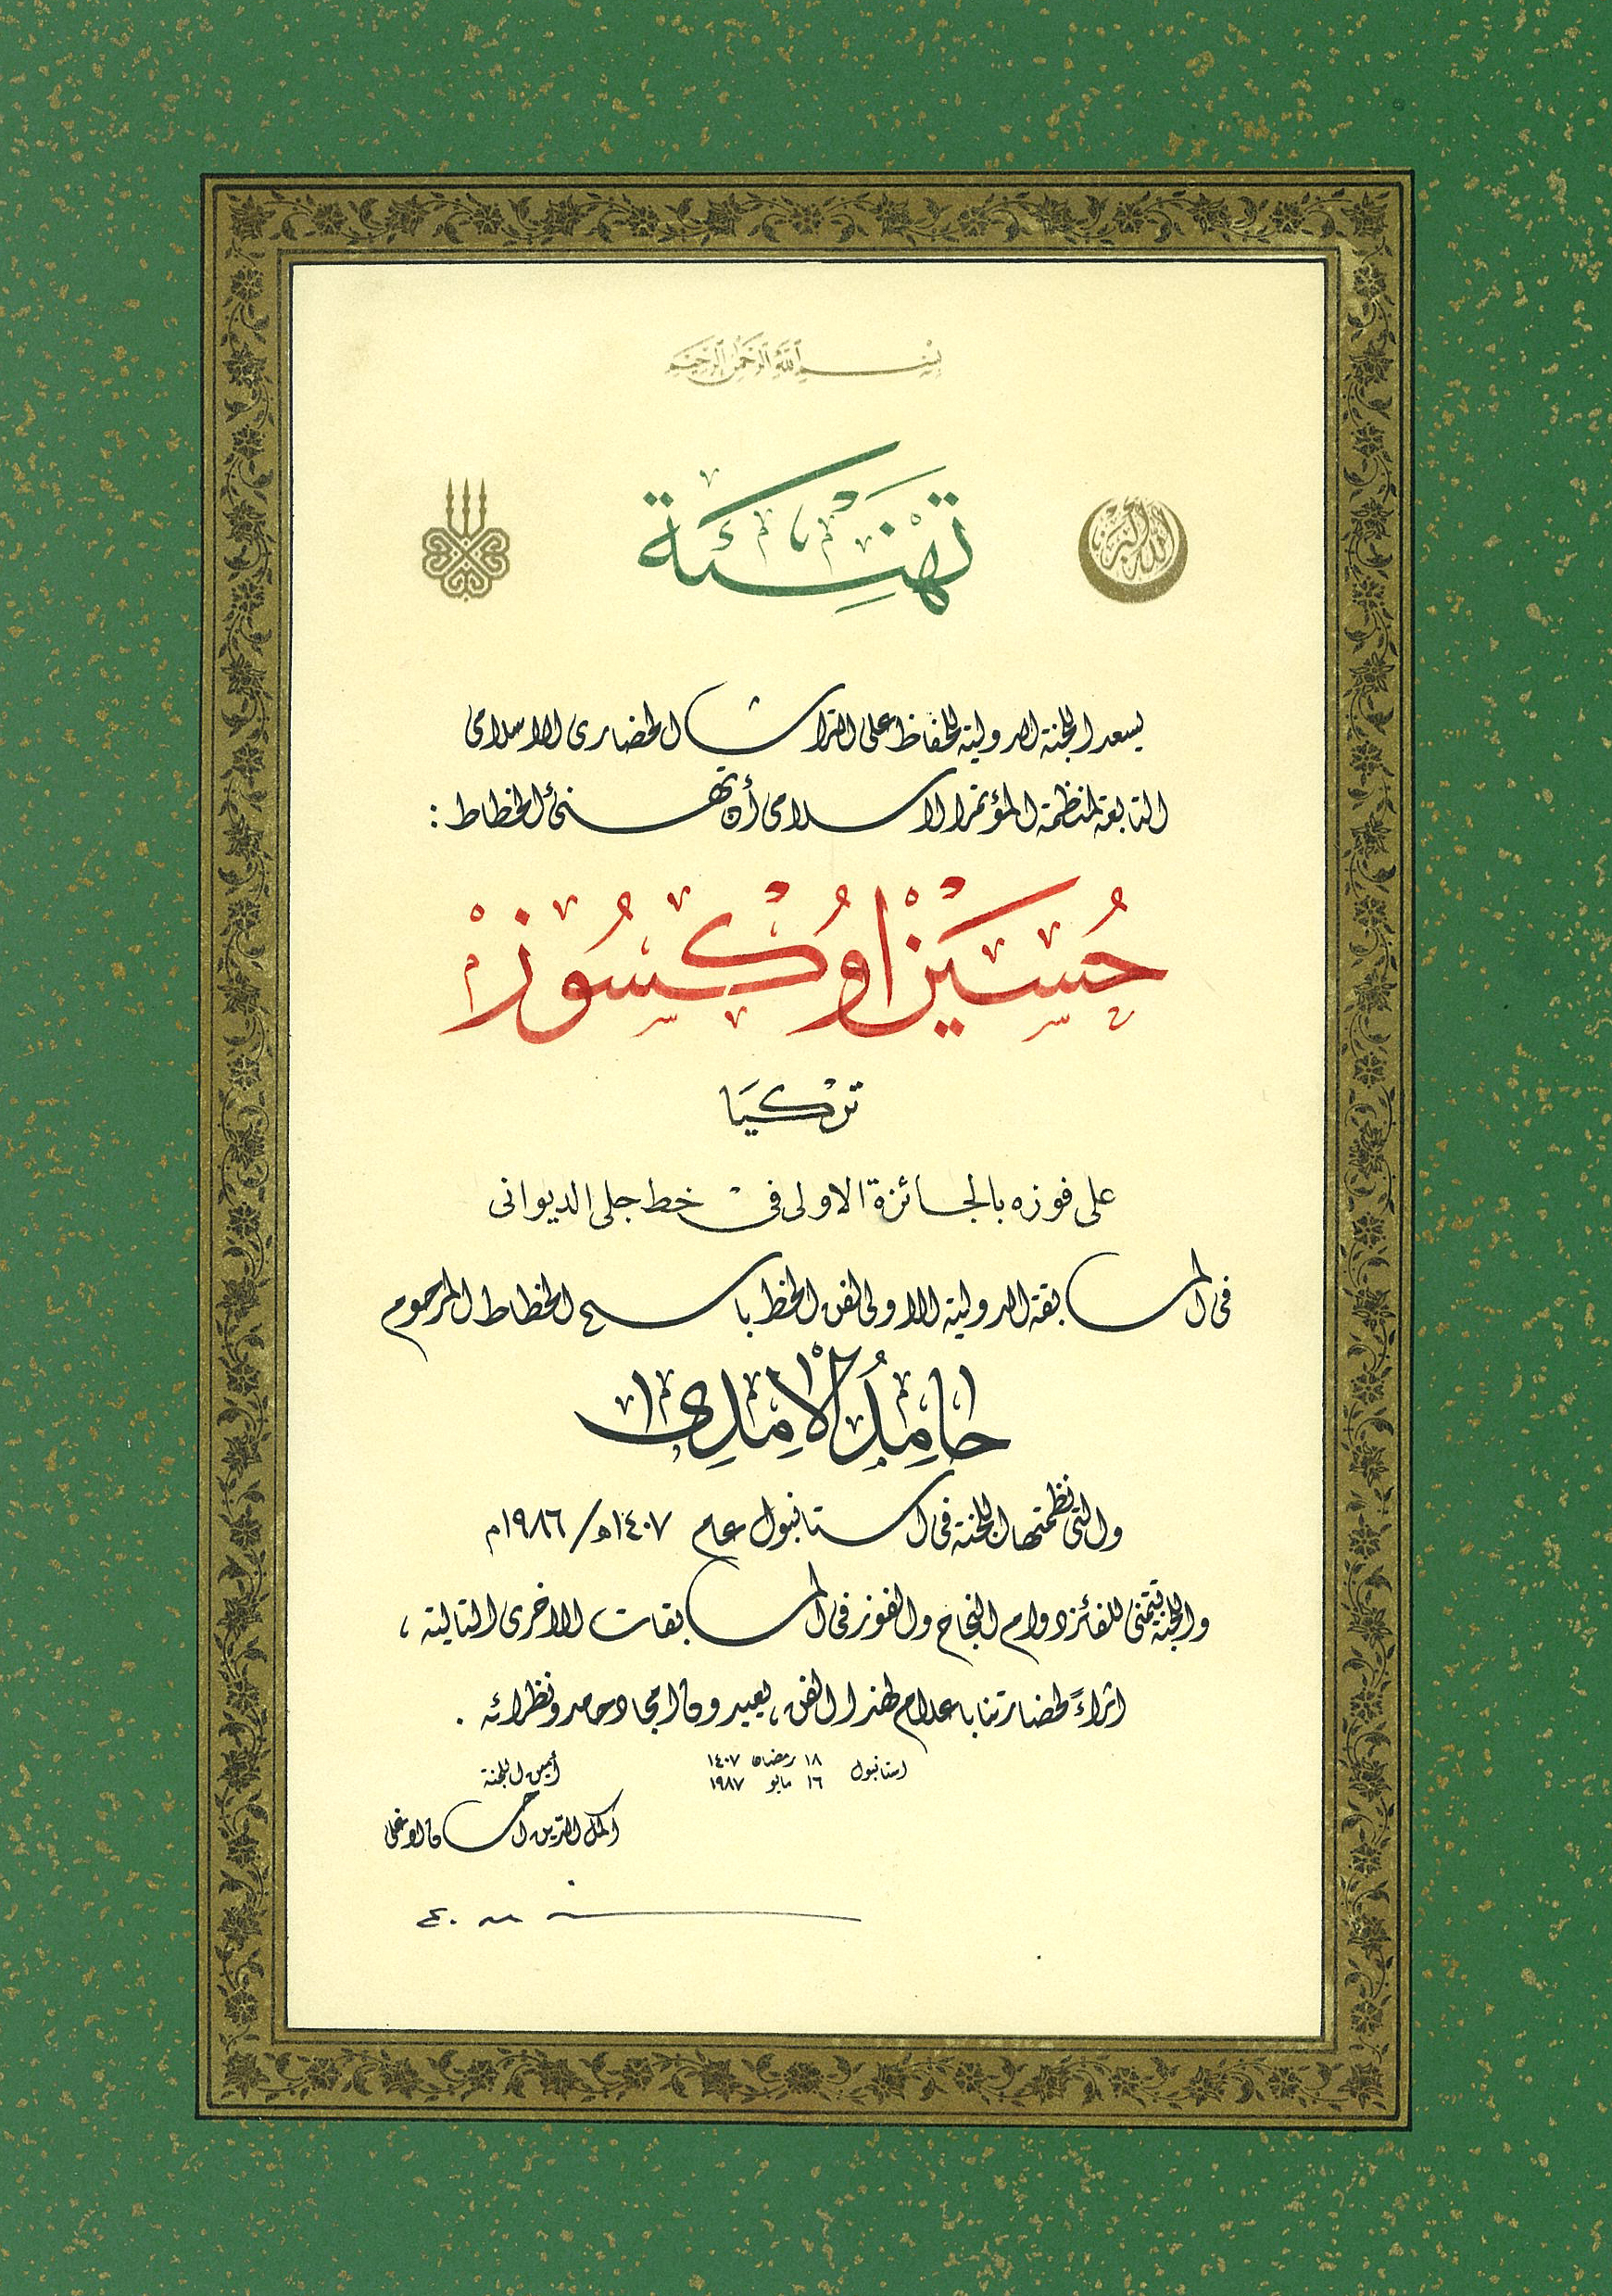 بِسْمِ اللَّهِ الرَّحْمَنِ الرَّحِيمِ
تَهْنِئَة
الله أكبر
يسعد اللجنة الدولية للحفاظ على التراث الحضارى الاسلامى
التابعة لمنظمة المؤتمر الاسلامى أن تهنئ الخطاط :
حُسَيْن اوُكْسُوزْ
تركيا
على فوزه بالجائزة الاولى فى خط جلى الديوانى
فى المسابقة الدولية الاولى لفن الخط باسم الخطاط المرحوم
حامِدُ الآمِدِى
والتى نظمتها اللجنة فى استانبول عام ١٤٠٧ھ/١٩٨٦م
واللجنة تتمنى للفائز دوام النجاح والفوز فى المسابقات الاخرى التالية ،
اثراءً لحضارتنا باعلام لهذا الفن ، يعيدون امجاد حامد ونظرائه .
استانبول ١٨ رمضان ١٤٠٧
١٦ مايو ١٩٨٧
أمين اللجنة
اكمل الدين احسان اوغلى